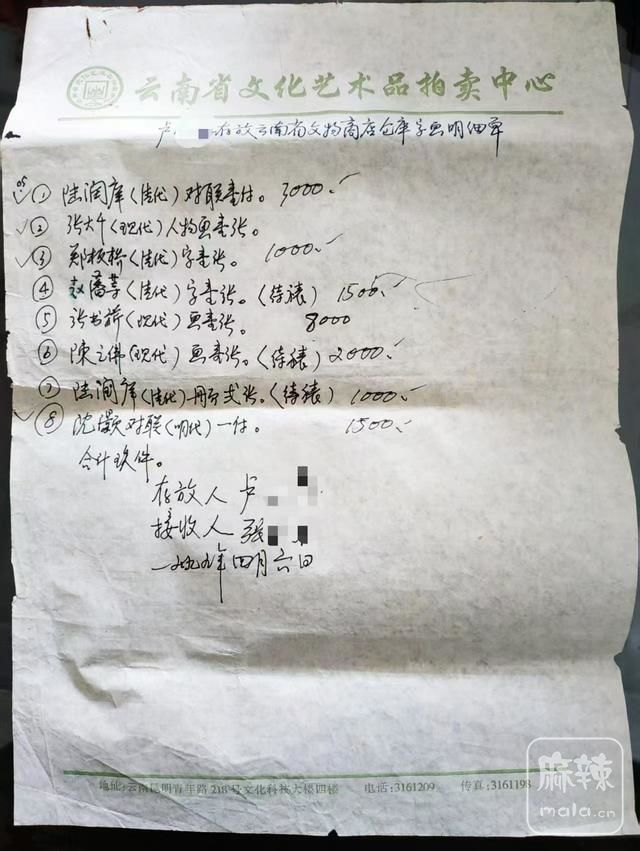 云南省文化艺术品拍卖中心
卢 存放云南省文物商店仓库字画明细单
① 陆润庠(清代)对联壹付。 3000.
② 张大千(现代)人物画壹张。
③ 郑板桥(清代)字壹张。 1000.
④ 赵藩草(清代)字壹张。(待裱) 1500.
⑤ 张书旂(现代)画壹张。 8000
⑥ 陈之佛(现代)画壹张。(待裱) 2000.
⑦ 陆润庠(清代)册页弍张。(待裱) 1000.
⑧ 沈颢对联(明代)一付。 1500.
合计玖件。
存放人 卢
接收人 张
一九九九年四月六日
地址:云南昆明青年路218号文化科技大楼四楼 电话:3161209 传真:3161198
麻辣
mala.cn